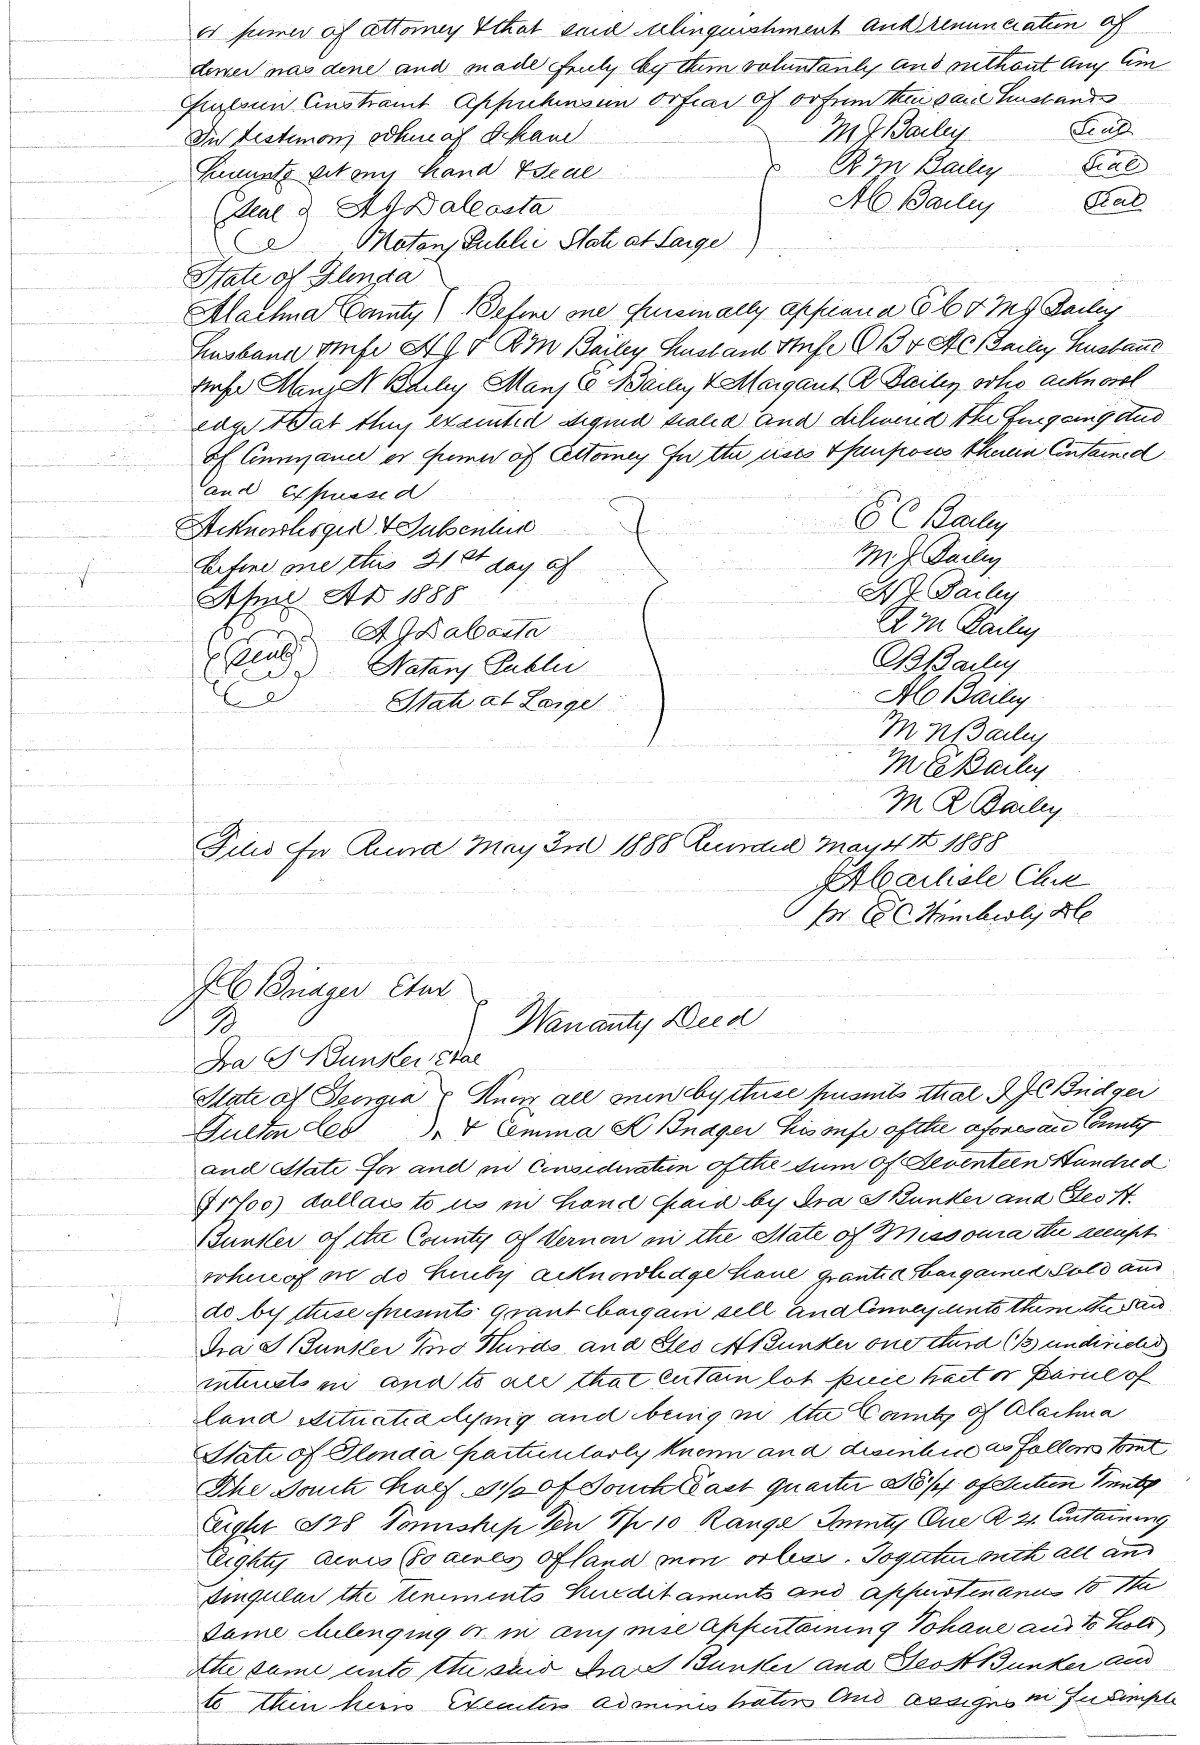 or power of attorney & that said relinquishment and renunciation of
dower was done and made freely by them voluntarily and without any Com
pulsion Constraint Apprehension or fear of or from their said husbands
In testimony whereof I have
hereunto set my hand & Seal
(Seal) A J DaCosta
Notary Public State at Large
M J Bailey Seal
R M Bailey Seal
A C Bailey Seal
State of Florida
Alachua County } Before me personally appeared E C & M J Bailey
husband & wife A J & R M Bailey husband & wife O B & A C Bailey husband
& wife Mary N Bailey Mary E Bailey & Margaret R Bailey who acknowl
edge that they executed signed sealed and delivered the foregoing deed
of Conveyance or power of Attorney for the uses & purposes therein Contained
and expressed
Acknowledged & Subscribed
before me this 21st day of
April AD 1888
A J DaCosta
(Seal) Notary Public
State at Large
E C Bailey
M J Bailey
A J Bailey
R M Bailey
O B Bailey
A C Bailey
M N Bailey
M E Bailey
M R Bailey
Filed for Record May 3rd 1888 Recorded May 4th 1888
J A Carlisle Clerk
pr E C Wimberly DC
J C Bridger Etux
To
Warranty Deed
Ira S Bunker Etal
State of Georgia } Know all men by these presents that I J C Bridger
Fulton Co } & Emma K Bridger his wife of the aforesaid County
and State for and in Consideration of the sum of Seventeen Hundred
($1700) dollars to us in hand paid by Ira S Bunker and Geo H.
Bunker of the County of Vernon in the State of Missouria the receipt
whereof we do hereby acknowledge have granted bargained Sold and
do by these presents grant bargain sell and Convey unto them the Said
Ira S Bunker Two Thirds and Geo H Bunker one third (1/3) undivided
interests in and to all that certain lot piece tract or parcel of
land situated lying and being in the County of Alachua
State of Florida particularly known and described as follows towit
The South half S1/2 of South East quarter SE1/4 of Section Twenty
Eight S28 Township Ten Tp 10 Range Twenty One R 21 Containing
Eighty acres (80 acres) of land more or less. Together with all and
singular the tenements hereditaments and appurtenances to the
same belonging or in any wise appertaining To have and to hold
the same unto the said Ira S Bunker and Geo H Bunker and
to their heirs Executors administrators and assigns in fee simple